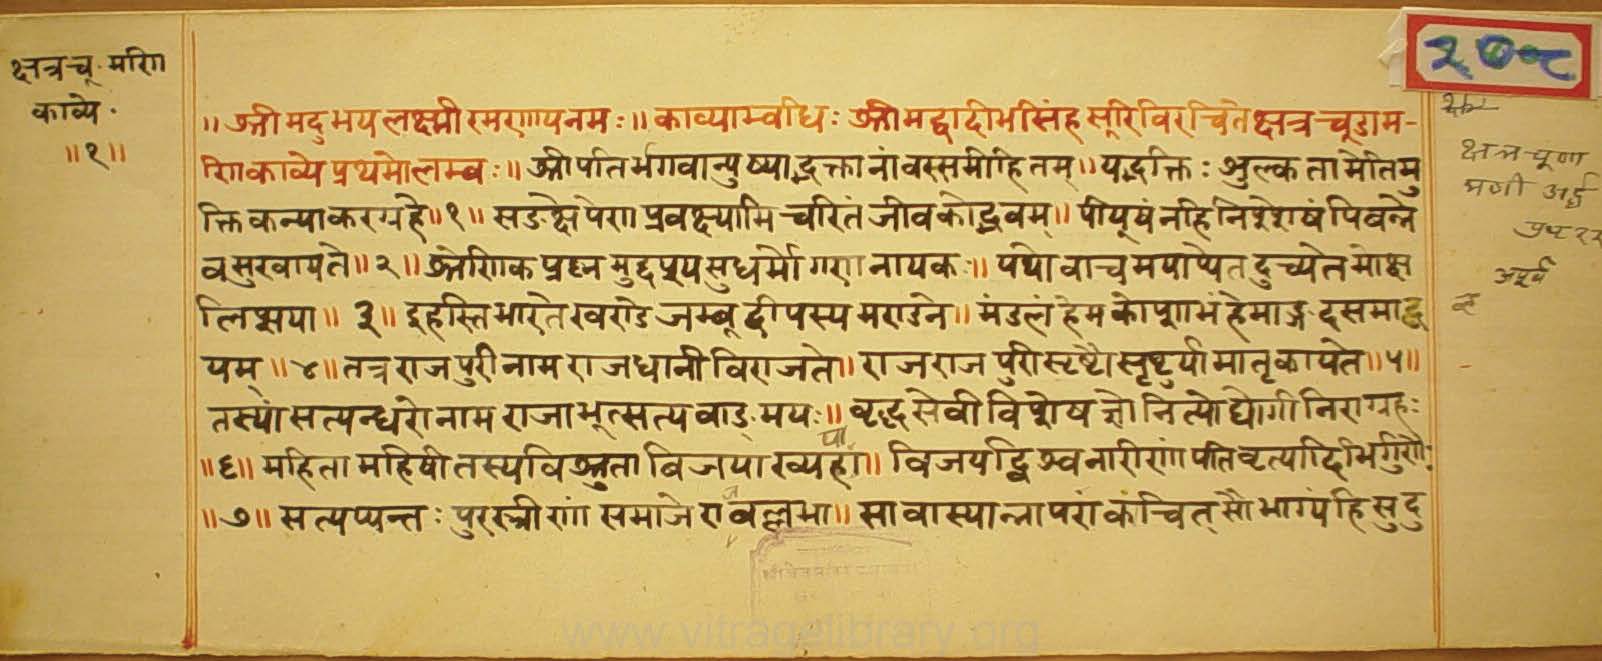 क्षत्रचू. मणि
काव्ये.
॥१॥
२७८
॥श्रीमदुभयलक्ष्मीरमणायनमः॥ काव्याम्वोधिः श्रीमद्वादीभसिंहसूरिविरचितेक्षत्रचूडाम-
णिकाव्येप्रथमोलम्वः॥ श्रीपतिर्भगवान्पुष्याद्भक्तानांवस्समीहितम्॥यद्भक्तिःशुल्कतामेतिमु
क्तिकन्याकरग्रहे॥१॥ सङ्क्षेपेणप्रवक्ष्यामिचरितंजीवकोद्भवम्॥ पीयूषंनहिनिश्शेषंपिवन्ने
वसुखायते॥२॥श्रेणिकप्रश्नमुद्दश्यसुधर्मोगणनायकः॥ यथोवाचमयाप्येतदुच्यतेमोक्ष
लिप्सया॥ ३॥ इहास्तिभारतेखण्डेजम्बूद्वीपस्यमण्डने॥ मंडलंहेमकोशाभंहेमाङ्गदसमाह्व
यम्॥४॥तत्रराजपुरीनामराजधानीविराजते॥ राजराजपुरीसृष्टौस्रष्टुर्यामातृकायते॥५॥
तस्यांसत्यन्धरोनामराजाभूत्सत्यवाङ्मयः॥ वृद्धसेवीविशेषज्ञोनित्योद्योगीनिराग्रहः
॥६॥ महितामहिषीतस्यविश्रुताविजयाख्यहा॥ विजयाद्विश्वनारीणांपतिवृत्यादिभिर्गुणैः
या
॥७॥ सत्यप्यन्तःपुरस्त्रीणांसमाजेरावल्लभा॥ सावास्यान्नापरांकंचित्सौभाग्यंहिसुदु
ज
क्षत्र चूणा
मणी अर्द्ध
अपूर्व
www.vitragelibrary.org